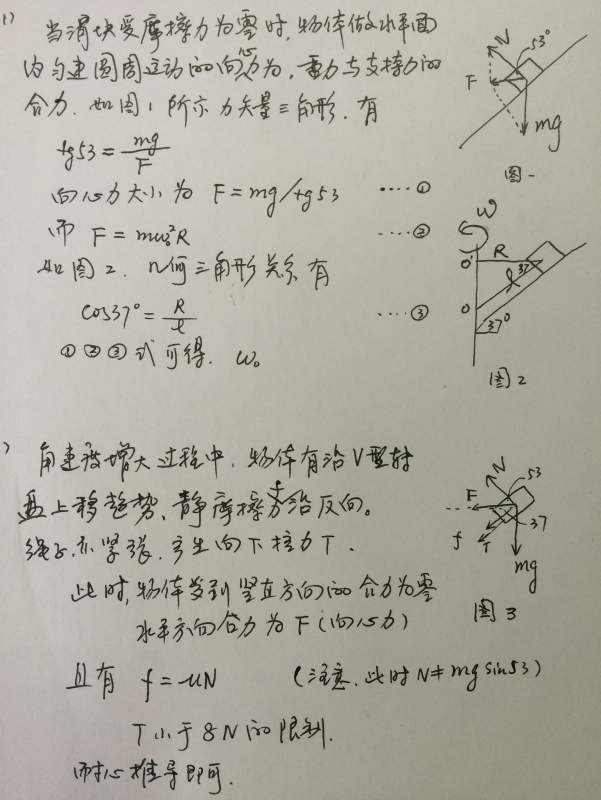 1)
当滑块受摩擦力为零时,物体做水平面
内匀速圆周运动的向心力为,重力与支持力的
合力.如图1所示力矢量三角形.有
tg53 = mg/F
向心力大小为 F = mg/tg53 ····①
而 F = mω₀²R ····②
如图2.几何三角形关系有
cos37° = R/ℓ ····③
①②③式可得. ω₀
N
53°
F
mg
图一
ω
O'
R
ℓ
37
O
37°
图2
)
角速度增大过程中.物体有沿V型转
盘上移趋势、静摩擦力f沿反向。
绳子亦紧张.产生向下拉力T.
此时,物体受到竖直方向的合力为零
水平方向合力为F(向心力)
且有 f = μN (注意.此时N≠mgsin53)
T小于8N的限制.
耐心推导即可.
N
53
F
37
f
T
mg
图3